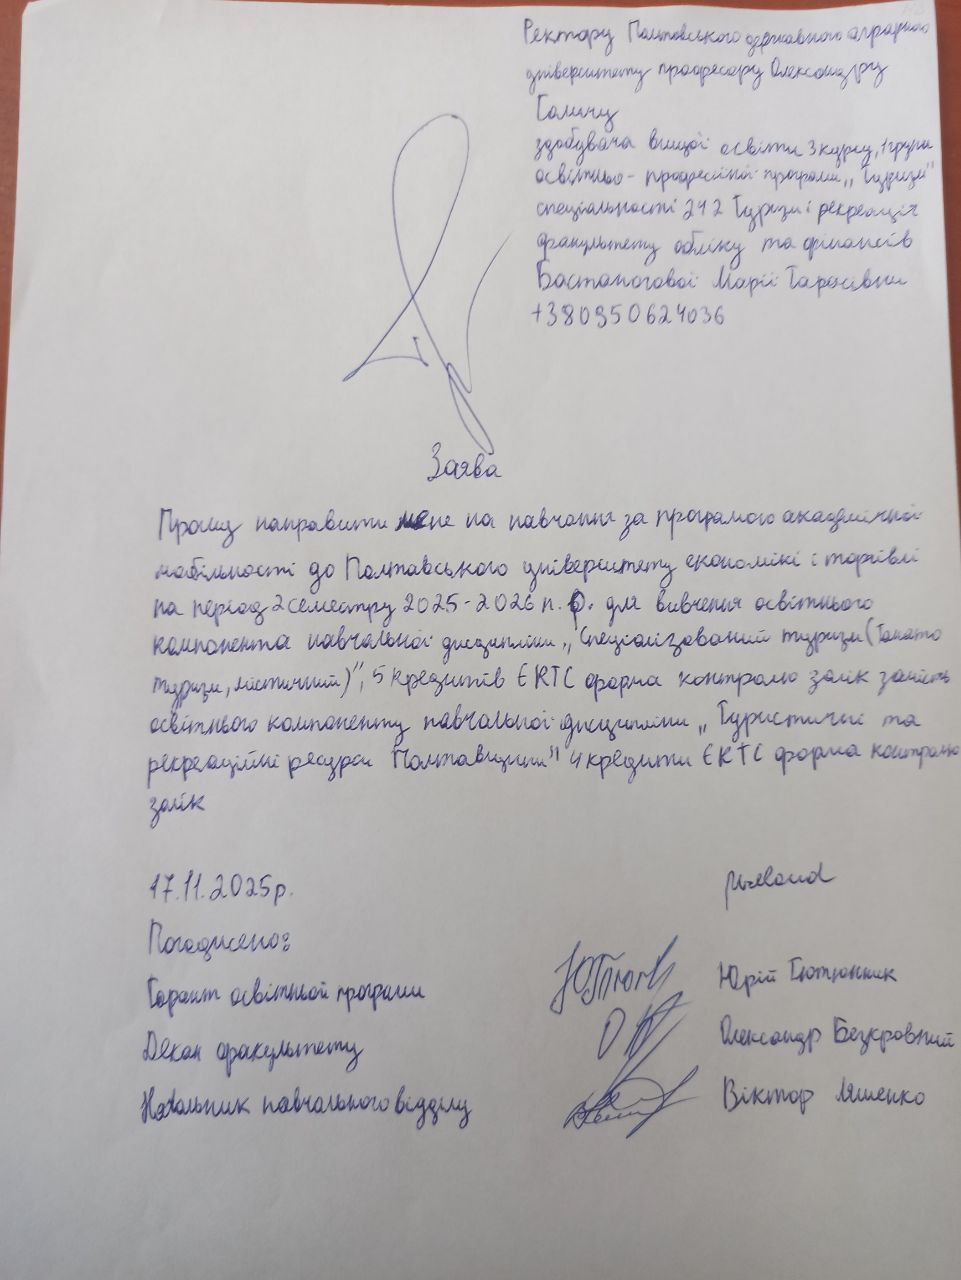 Ректору Полтовського державного аграрного
університету професору Олександру
Галичу
здобувача вищої освіти 3 курсу, 1 група
освітньо-професійної програми „Туризм"
спеціальності 242 Туризм і рекреація
факультету обліку та фінансів
Марії Тарасівни
+380950624036
Заява
Прошу направити мене на навчання за програмою академічної
мобільності до Полтавського університету економікі і торгівлі
на період 2 семестру 2025-2026 н.р. для вивчення освітнього
компонента навчальної дисципліни „Спеціалізований туризм (Танато
туризм, містичний)", 5 кредитів ЄКТС форма контролю залік замість
освітнього компоненту навчальної дисципліни „Туристичні та
рекреаційні ресурси Полтавщини" 4 кредити ЄКТС форма контролю
залік
17.11.2025р.
Погоджено:
Гарант освітньої програми Юрій Тютюнник
Декан факультету Олександр Безкровний
Начальник навчального відділу Віктор Ляшенко